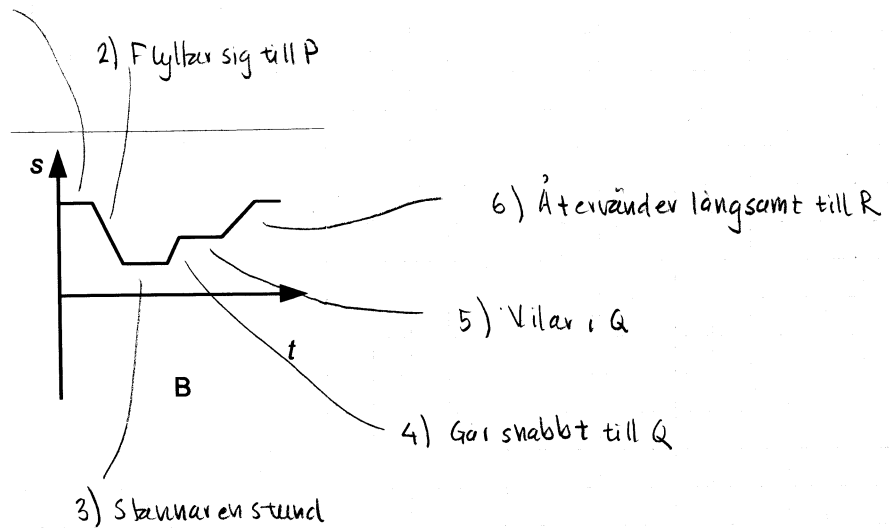 2) Flyttar sig till P
s
6) Återvänder långsamt till R
5) Vilar i Q
t
B
4) Går snabbt till Q
3) Stannar en stund